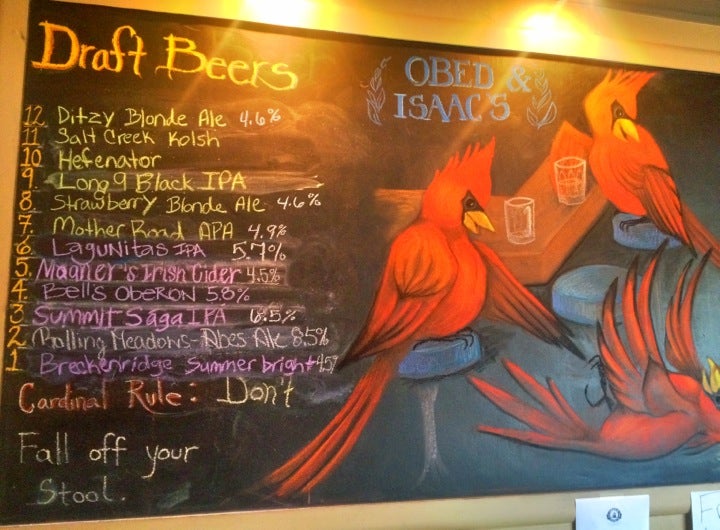 Draft Beers
OBED &
ISAAC'S
12 Ditzy Blonde Ale 4.6%
11 Salt Creek Kolsh
10 Hefenator
9 Long 9 Black IPA
8. Strawberry Blonde Ale 4.6%
7. Mother Road APA 4.9%
6 Lagunitas IPA 5.7%
5. Magner's Irish Cider 4.5%
4. Bell's Oberon 5.8%
3 Summit Saga IPA 6.5%
2 Rolling Meadows-Abes Ale 8.5%
1 Breckenridge Summer bright
Cardinal Rule: Don't
Fall off your
Stool.